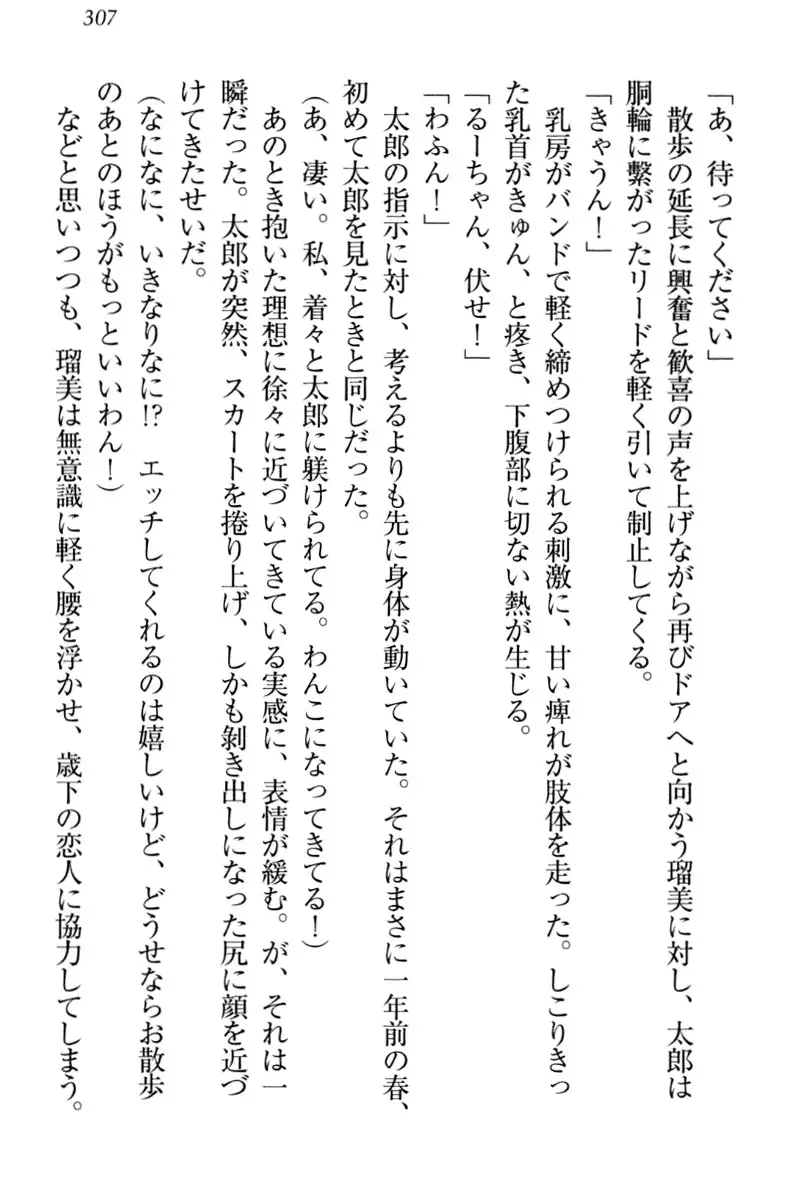 307
「あ、待ってください」
　散歩の延長に興奮と歓喜の声を上げながら再びドアへと向かう瑠美に対し、太郎は
胴輪に繋がったリードを軽く引いて制止してくる。
「きゃうん！」
　乳房がバンドで軽く締めつけられる刺激に、甘い痺れが肢体を走った。しこりきっ
た乳首がきゅん、と疼き、下腹部に切ない熱が生じる。
「るーちゃん、伏せ！」
「わふん！」
　太郎の指示に対し、考えるよりも先に身体が動いていた。それはまさに一年前の春、
初めて太郎を見たときと同じだった。
（あ、凄い。私、着々と太郎に躾けられてる。わんこになってきてる！）
　あのとき抱いた理想に徐々に近づいてきている実感に、表情が緩む。が、それは一
瞬だった。太郎が突然、スカートを捲り上げ、しかも剝き出しになった尻に顔を近づ
けてきたせいだ。
（なになに、いきなりなに!?　エッチしてくれるのは嬉しいけど、どうせならお散歩
のあとのほうがもっといいわん！）
　などと思いつつも、瑠美は無意識に軽く腰を浮かせ、歳下の恋人に協力してしまう。